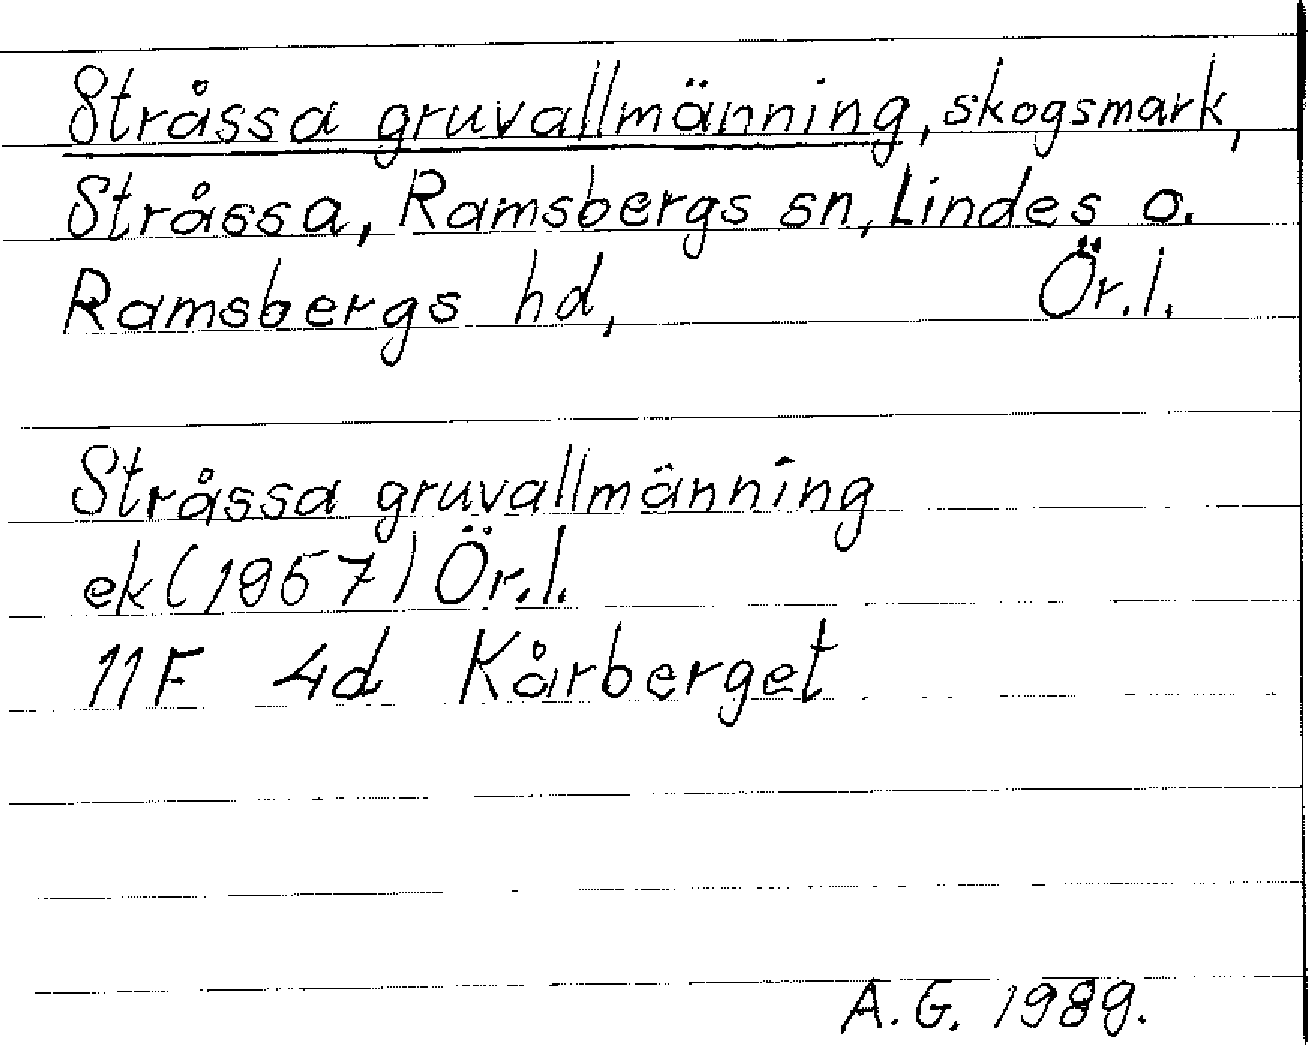 Stråssa gruvallmänning, skogsmark,
Stråssa, Ramsbergs sn, Lindes o.
Ramsbergs hd, Ör.l.
Stråssa gruvallmänning
ek (1957) Ör.l.
11F 4d Kårberget
A.G. 1989.